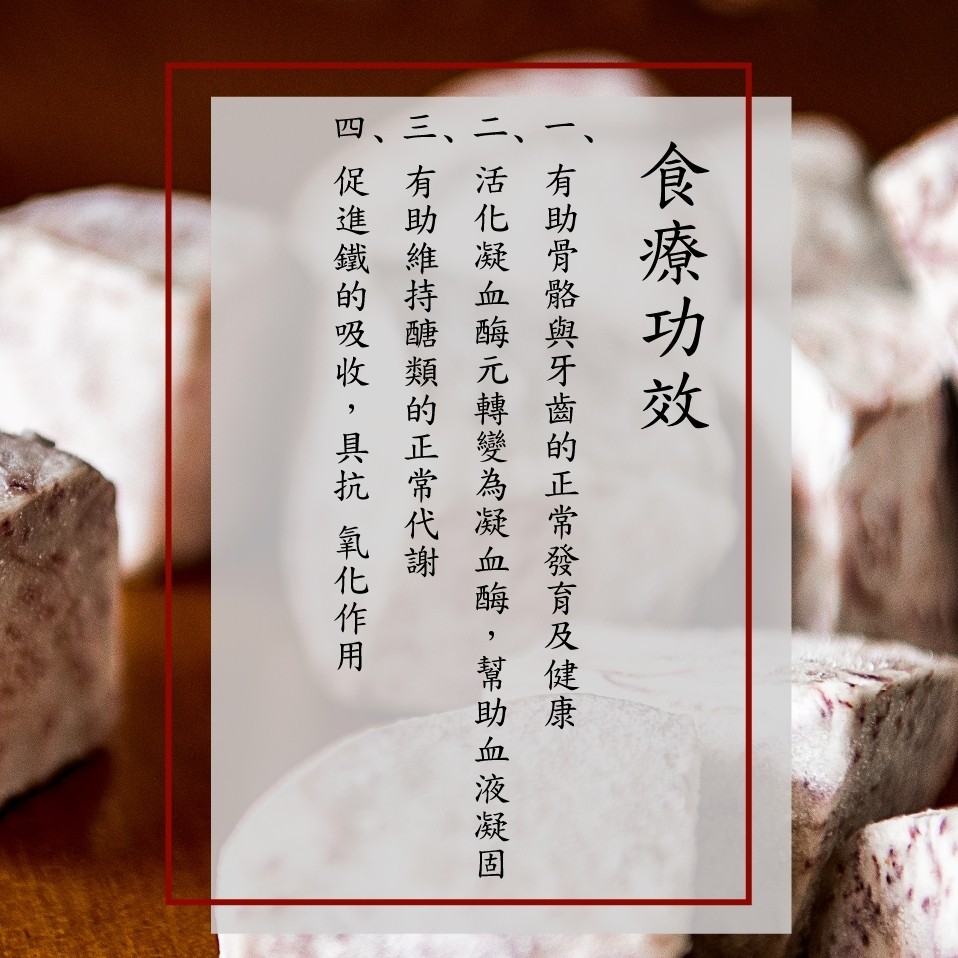 食療功效
一、有助骨骼與牙齒的正常發育及健康
二、活化凝血酶元轉變為凝血酶，幫助血液凝固
三、有助維持醣類的正常代謝
四、促進鐵的吸收，具抗 氧化作用